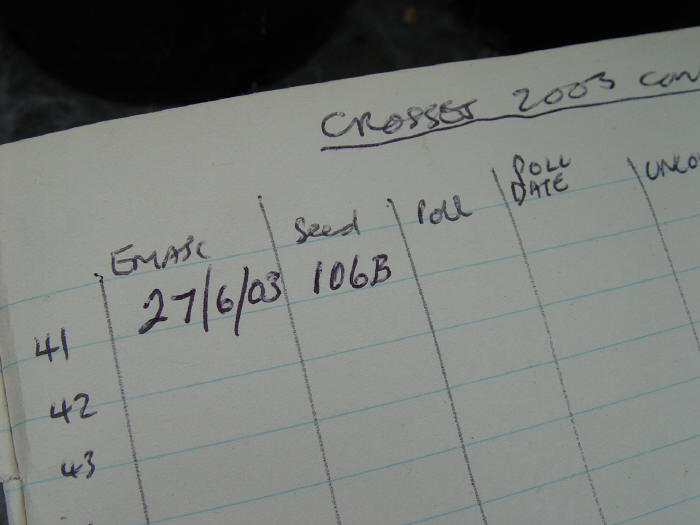 CROSSES 2003 CON
EMASC Seed Poll POLL DATE UNCO
41 27/6/03 106B
42
43